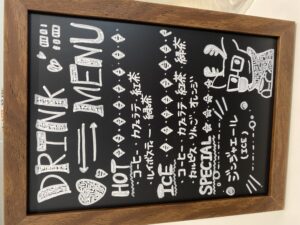 DRINK
MENU
HOT
・コーヒー・カフェラテ・紅茶
・ルイボスティー・緑茶
ICE
・コーヒー・カフェラテ・紅茶・緑茶
・カルピス・りんご・オレンジ
SPECIAL
ジンジャエール
(ICE)